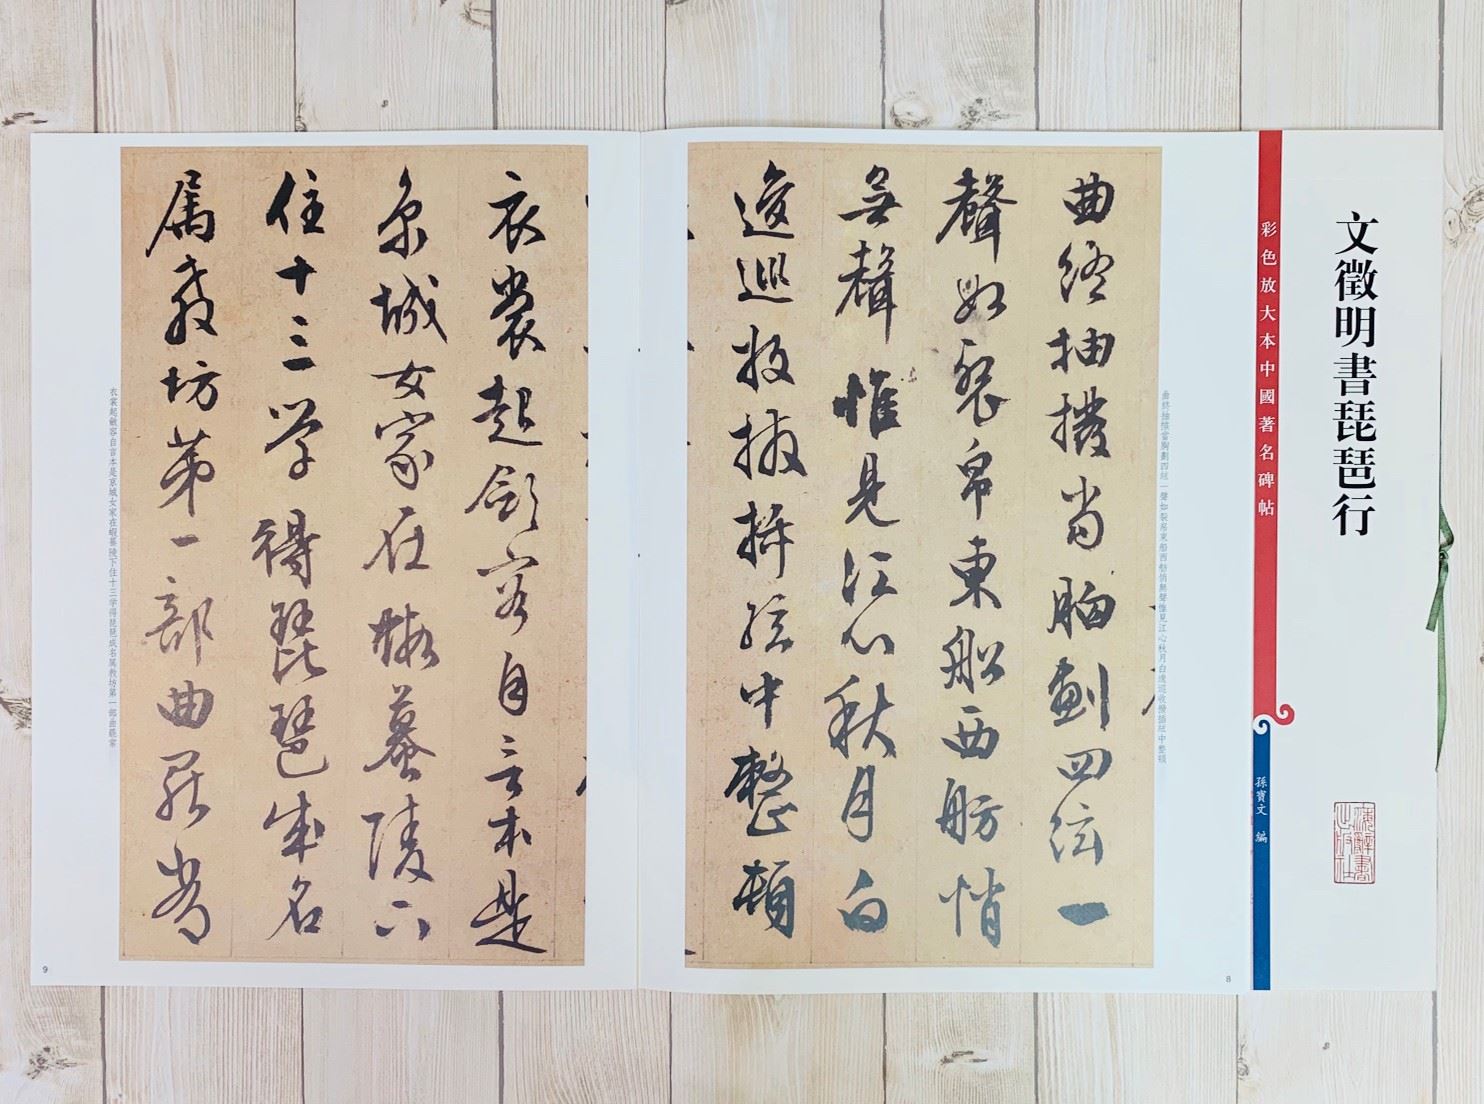 文徵明書琵琶行
彩色放大本中國著名碑帖
孫寶文 編
曲終抽撥當胸劃四絃一聲如裂帛東船西舫悄無聲惟見江心秋月白逡巡收撥插絃中整頓
曲終抽撥當胸劃四弦一
聲如裂帛東船西舫悄
無聲惟見江心秋月白
逡巡收撥插絃中整頓
8
衣裳起斂容自言本是
京城女家在蝦蟇陵下
住十三學得琵琶成名
属教坊第一部曲罷常
衣裳起斂容自言本是京城女家在蝦蟇陵下住十三学得琵琶成名属教坊第一部曲罷常
9